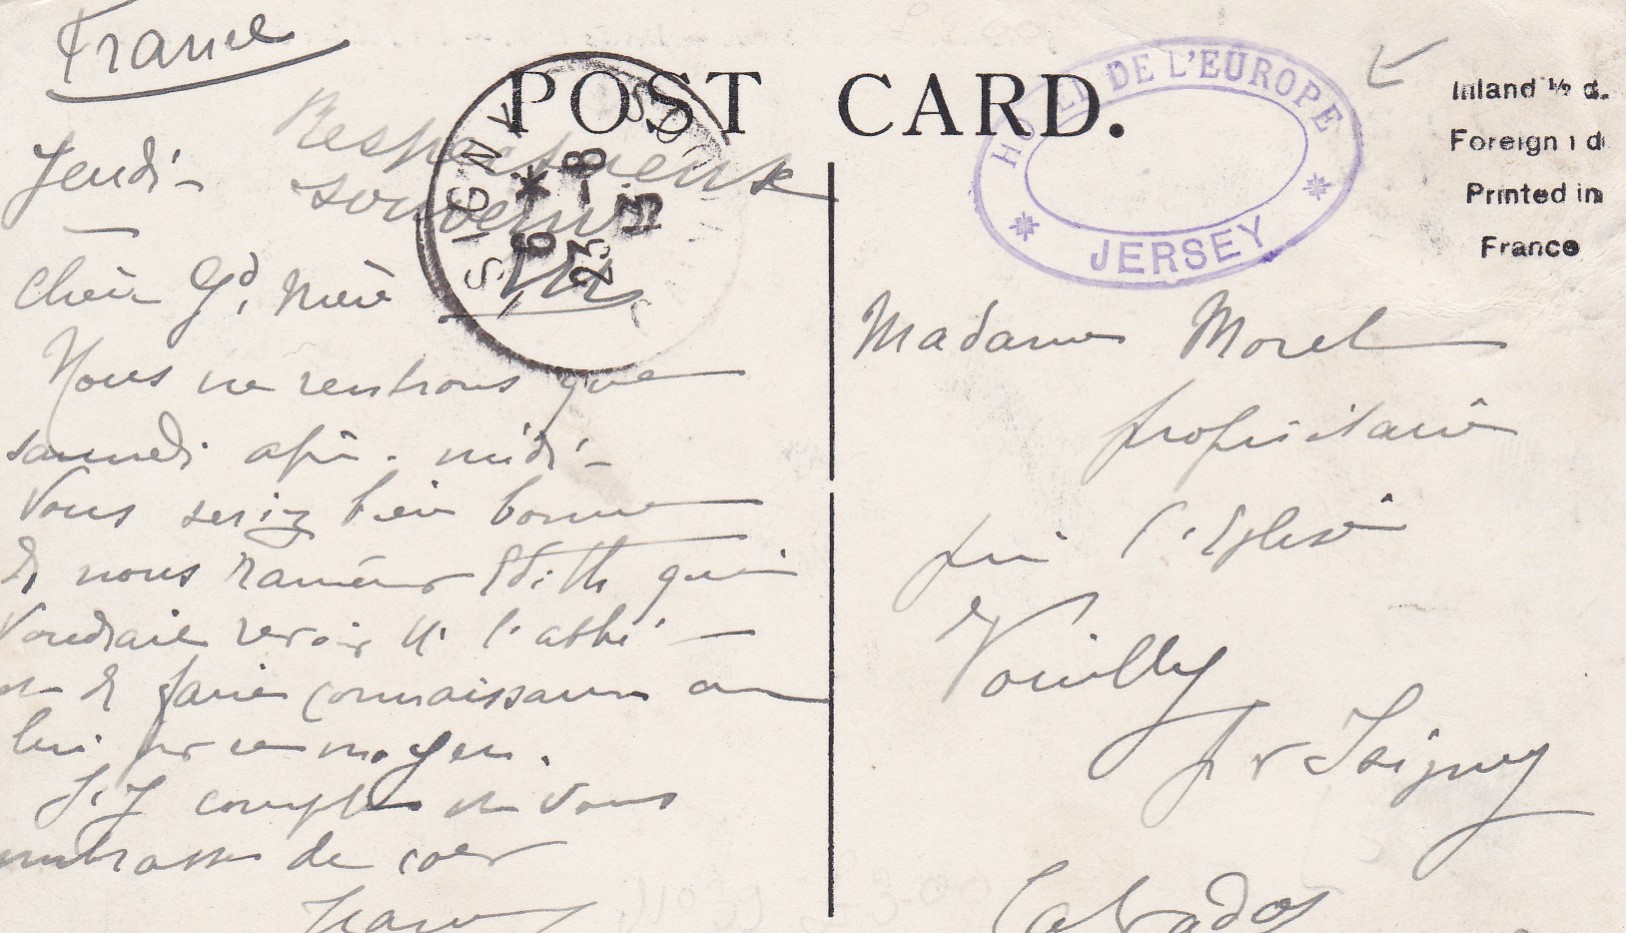 France
POST CARD.
HOTEL DE L'EUROPE
JERSEY
Inland ½ d.
Foreign 1 d
Printed in
France
SIGNY
6 * 8
23 13
Respectueux
souvenirs
Jeudi -
Chère Gd. Mère
Nous ne rentrons que
samedi après-midi -
Vous seriez bien bonne
de nous ramener Edith qui
voudrait revoir M. l'abbé -
et de faire connaissance avec
lui par ce moyen.
J'y compte et vous
embrasse de coeur
Madame Morel
propriétaire
près l'Eglise
Vouilly
pr Isigny
Calvados
No 39 £ 3.00